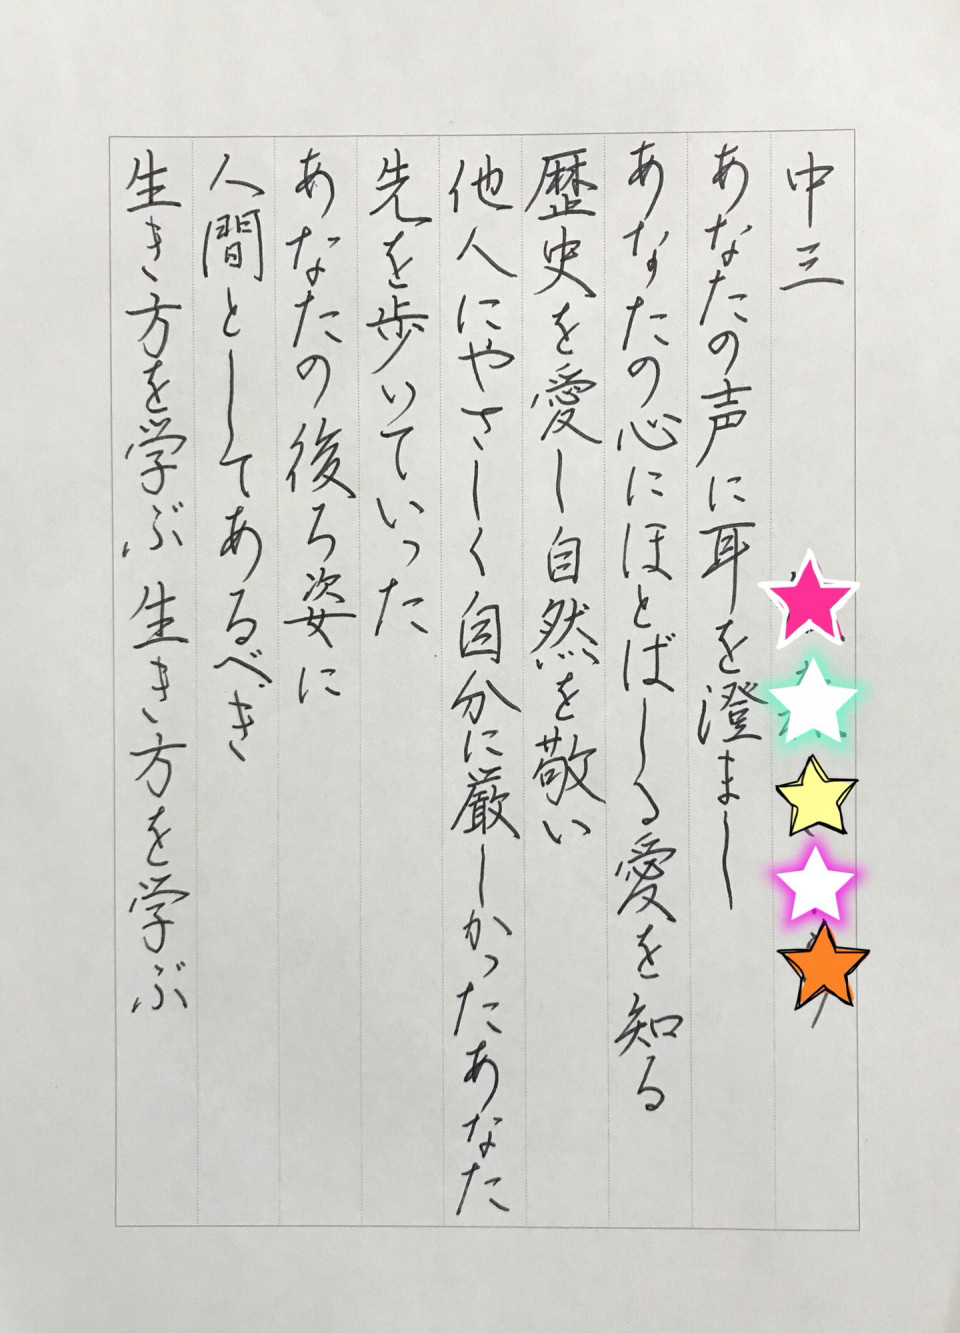 中三
あなたの声に耳を澄まし
あなたの心にほとばしる愛を知る
歴史を愛し自然を敬い
他人にやさしく自分に厳しかったあなた
先を歩いていった
あなたの後ろ姿に
人間としてあるべき
生き方を学ぶ 生き方を学ぶ